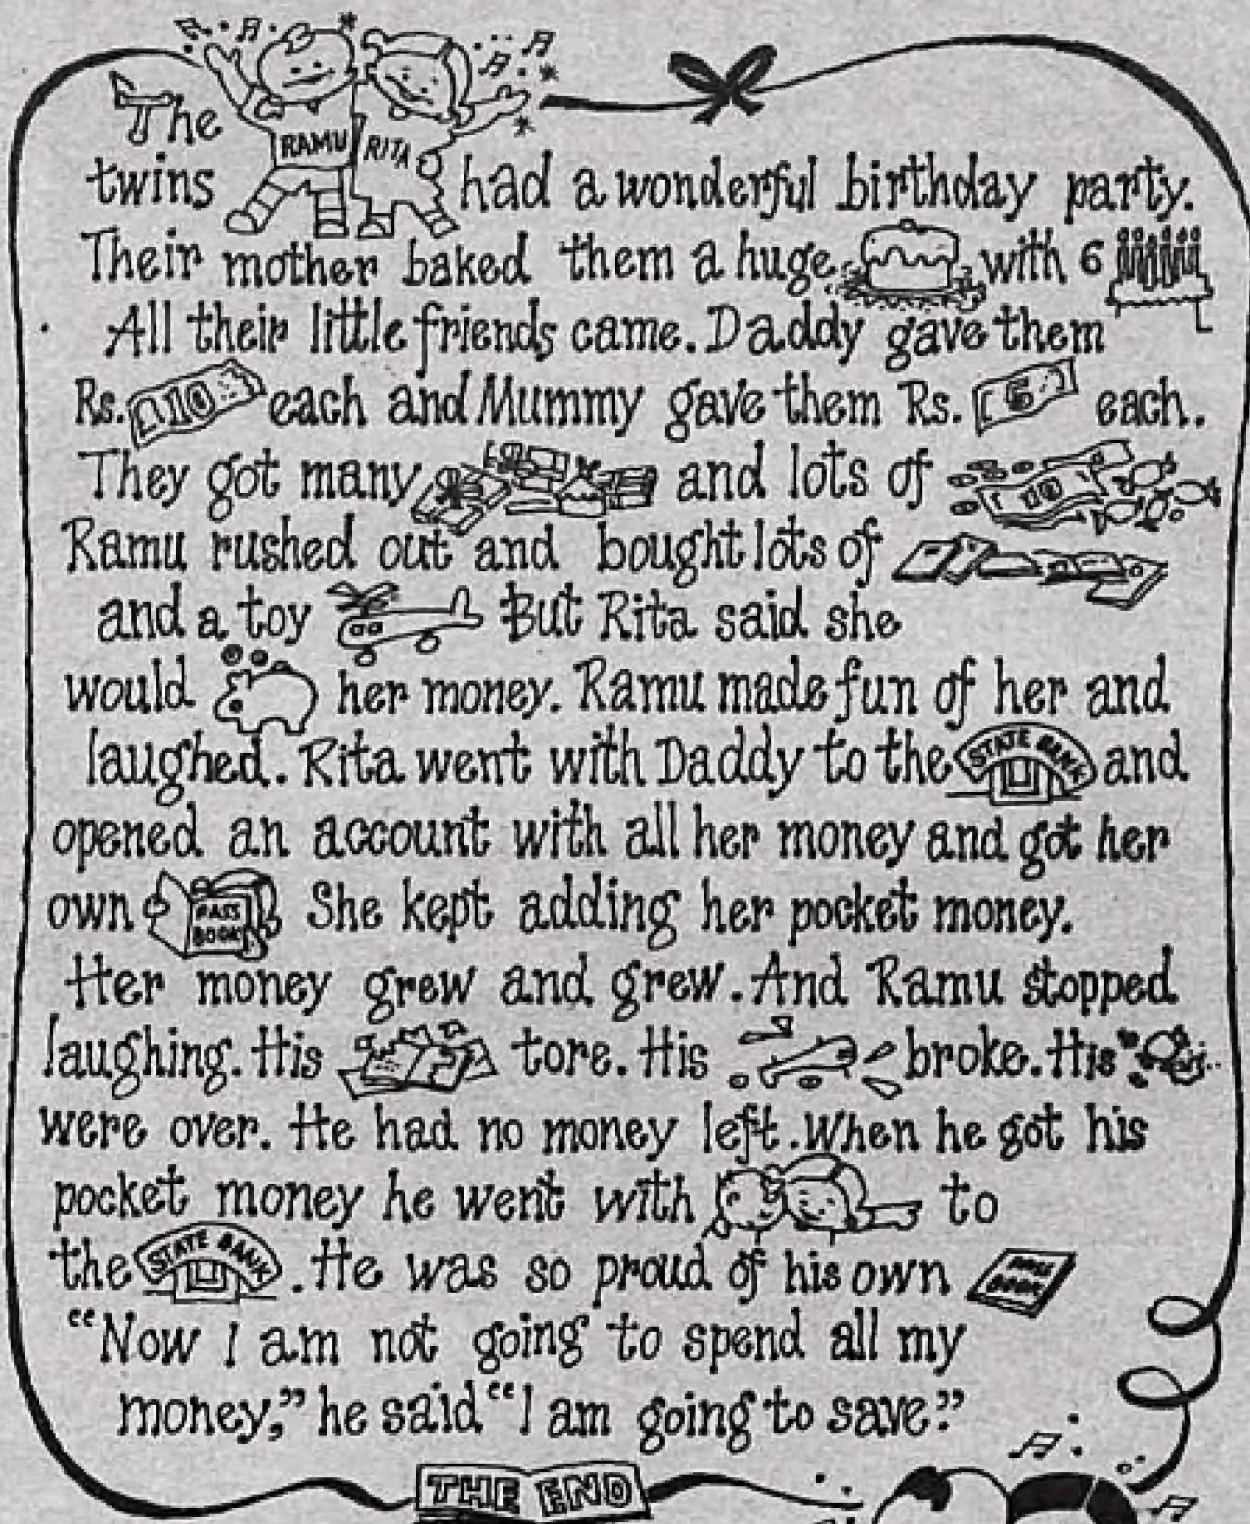 The
RAMU RITA
twins had a wonderful birthday party.
Their mother baked them a huge with 6
All their little friends came. Daddy gave them
Rs. 10 each and Mummy gave them Rs. 5 each.
They got many and lots of 10
Ramu rushed out and bought lots of
and a toy But Rita said she
would her money. Ramu made fun of her and
laughed. Rita went with Daddy to the STATE BANK and
opened an account with all her money and got her
own PASS BOOK She kept adding her pocket money.
Her money grew and grew. And Ramu stopped
laughing. His tore. His broke. His
were over. He had no money left. When he got his
pocket money he went with to
the STATE BANK. He was so proud of his own PASS BOOK
"Now I am not going to spend all my
money," he said "I am going to save."
THE END